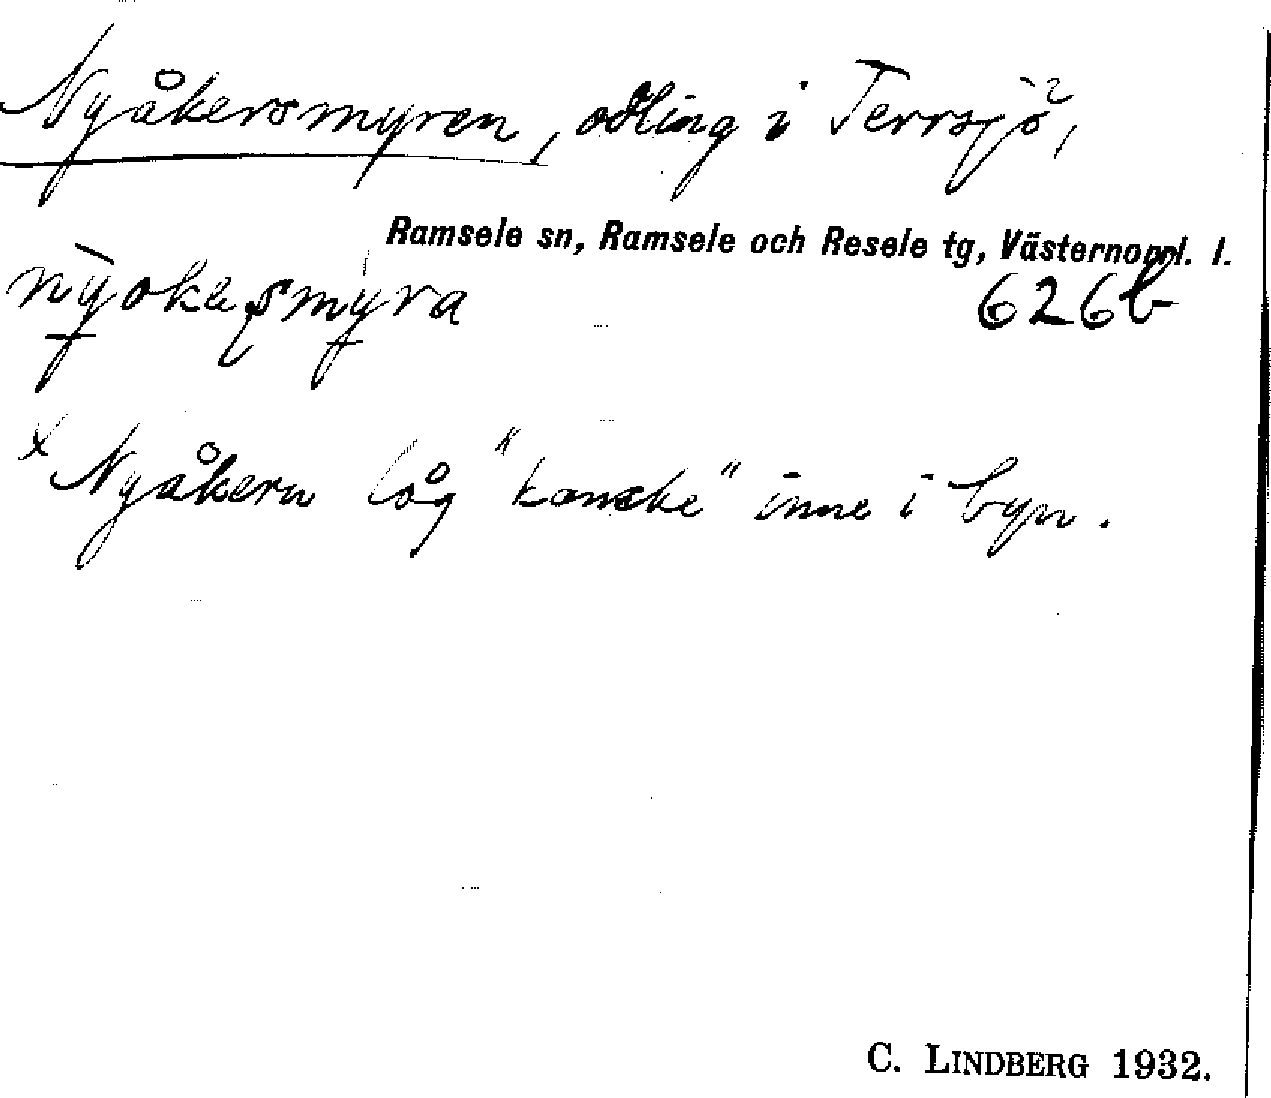 Nyåkersmyren, odling i Terrsjö,
Ramsele sn, Ramsele och Resele tg, Västernorrl. l.
nyokesmyra 626b
x Nyåkern låg "kanske" inne i byn.
C. LINDBERG 1932.